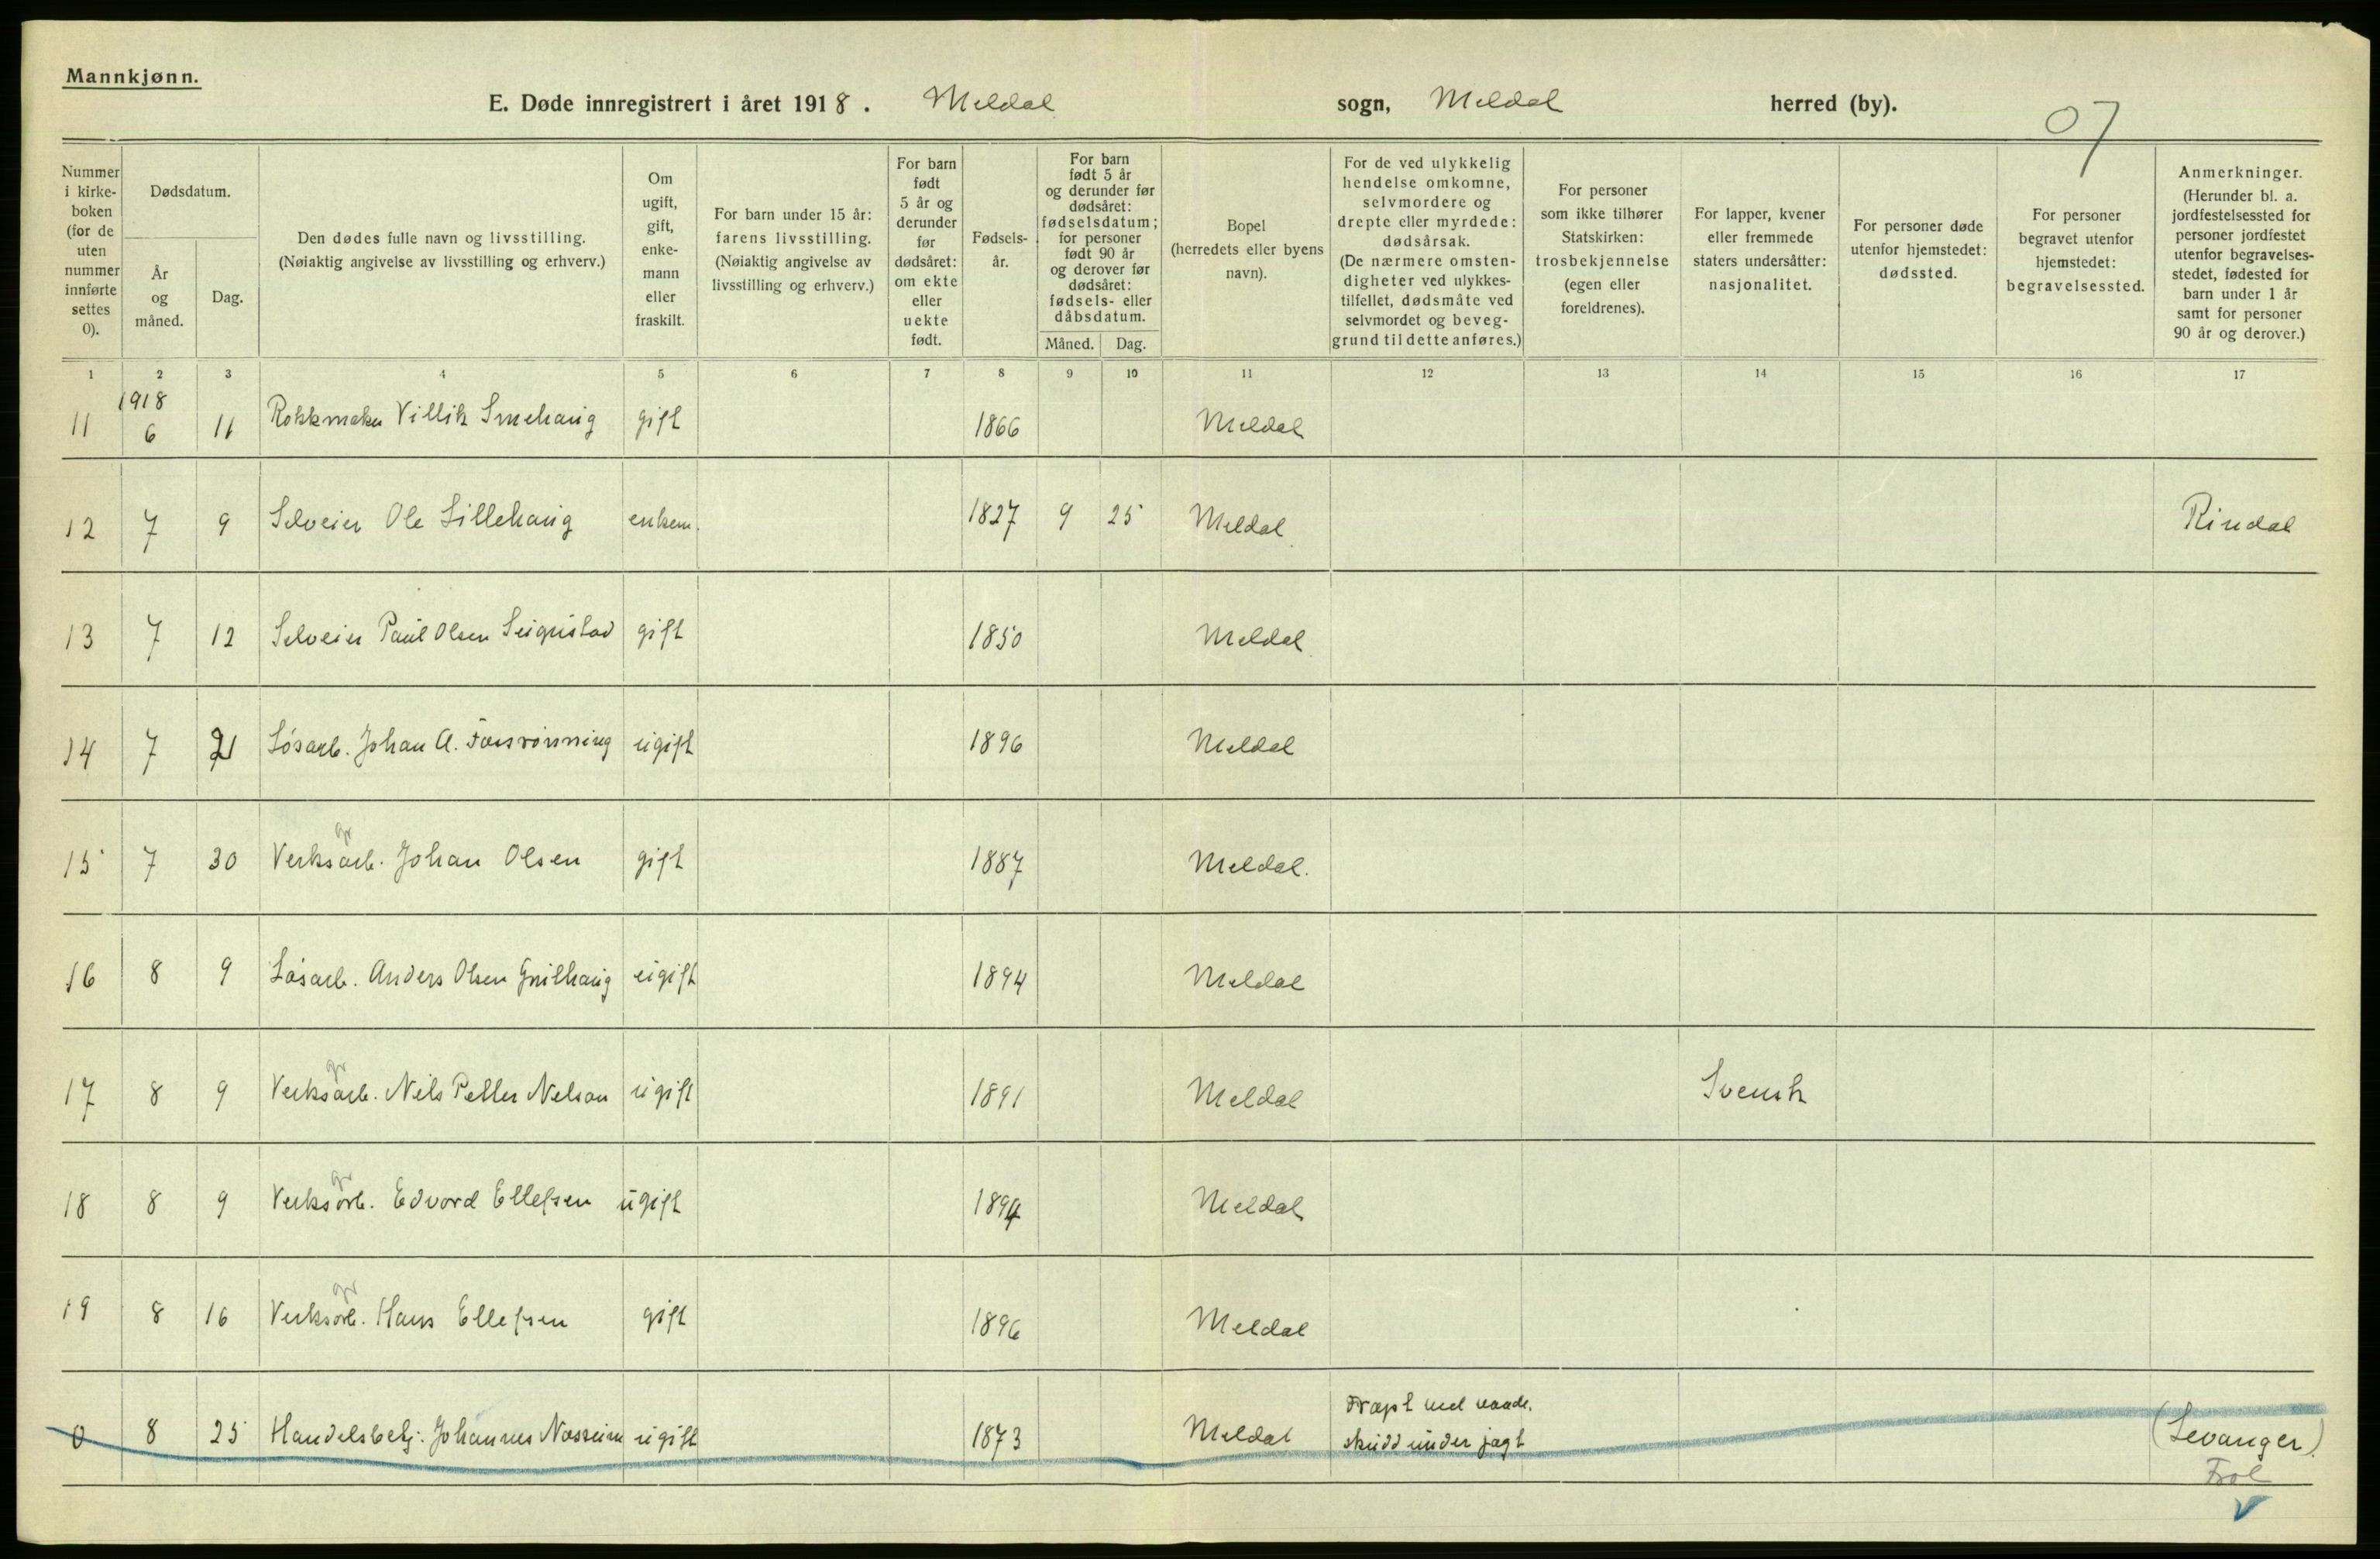 Mannkjønn.
E. Døde innregistrert i året 1918. Meldal sogn, Meldal herred (by).
07
Nummer i kirke-boken (for de uten nummer innførte settes 0).
Dødsdatum.
År og måned.
Dag.
Den dødes fulle navn og livsstilling. (Nøiaktig angivelse av livsstilling og erhverv.)
Om ugift, gift, enke-mann eller fraskilt.
For barn under 15 år: farens livsstilling. (Nøiaktig angivelse av livsstilling og erhverv.)
For barn født 5 år og derunder før dødsåret: om ekte eller uekte født.
Fødsels-år.
For barn født 5 år og derunder før dødsåret: fødselsdatum; for personer født 90 år og derover før dødsåret: fødsels- eller dåbsdatum.
Måned. Dag.
Bopel (herredets eller byens navn).
For de ved ulykkelig hendelse omkomne, selvmordere og drepte eller myrdede: dødsårsak. (De nærmere omsten-digheter ved ulykkes-tilfellet, dødsmåte ved selvmordet og beveg-grund til dette anføres.)
For personer som ikke tilhører Statskirken: trosbekjennelse (egen eller foreldrenes).
For lapper, kvener eller fremmede staters undersåtter: nasjonalitet.
For personer døde utenfor hjemstedet: dødssted.
For personer begravet utenfor hjemstedet: begravelsessted.
Anmerkninger. (Herunder bl. a. jordfestelsessted for personer jordfestet utenfor begravelses-stedet, fødested for barn under 1 år samt for personer 90 år og derover.)
1 2 3 4 5 6 7 8 9 10 11 12 13 14 15 16 17
1918
11 6 11 Rokkmaker Villik Smehaug gift 1866 Meldal
12 7 9 Selveier Ole Lillehaug enkem. 1827 9 25 Meldal Rindal
13 7 12 Selveier Paul Olsen gift 1850 Meldal
14 7 21 Løsarb. Johan A. ugift 1896 Meldal
gr
15 7 30 Verksarb. Johan Olsen gift 1887 Meldal.
16 8 9 Løsarb. Anders Olsen ugift 1894 Meldal
gr
17 8 9 Verksarb. Nils Petter Nelson ugift 1891 Meldal Svensk
gr
18 8 9 Verksarb. Edvard Ellefsen ugift 1894 Meldal
gr
19 8 16 Verksarb. Hans Ellefsen gift 1896 Meldal
0 8 25 Handelsbetj. Johannes ugift 1873 Meldal Dræpt ved vaade. skudd under jagt (Levanger)
Frol